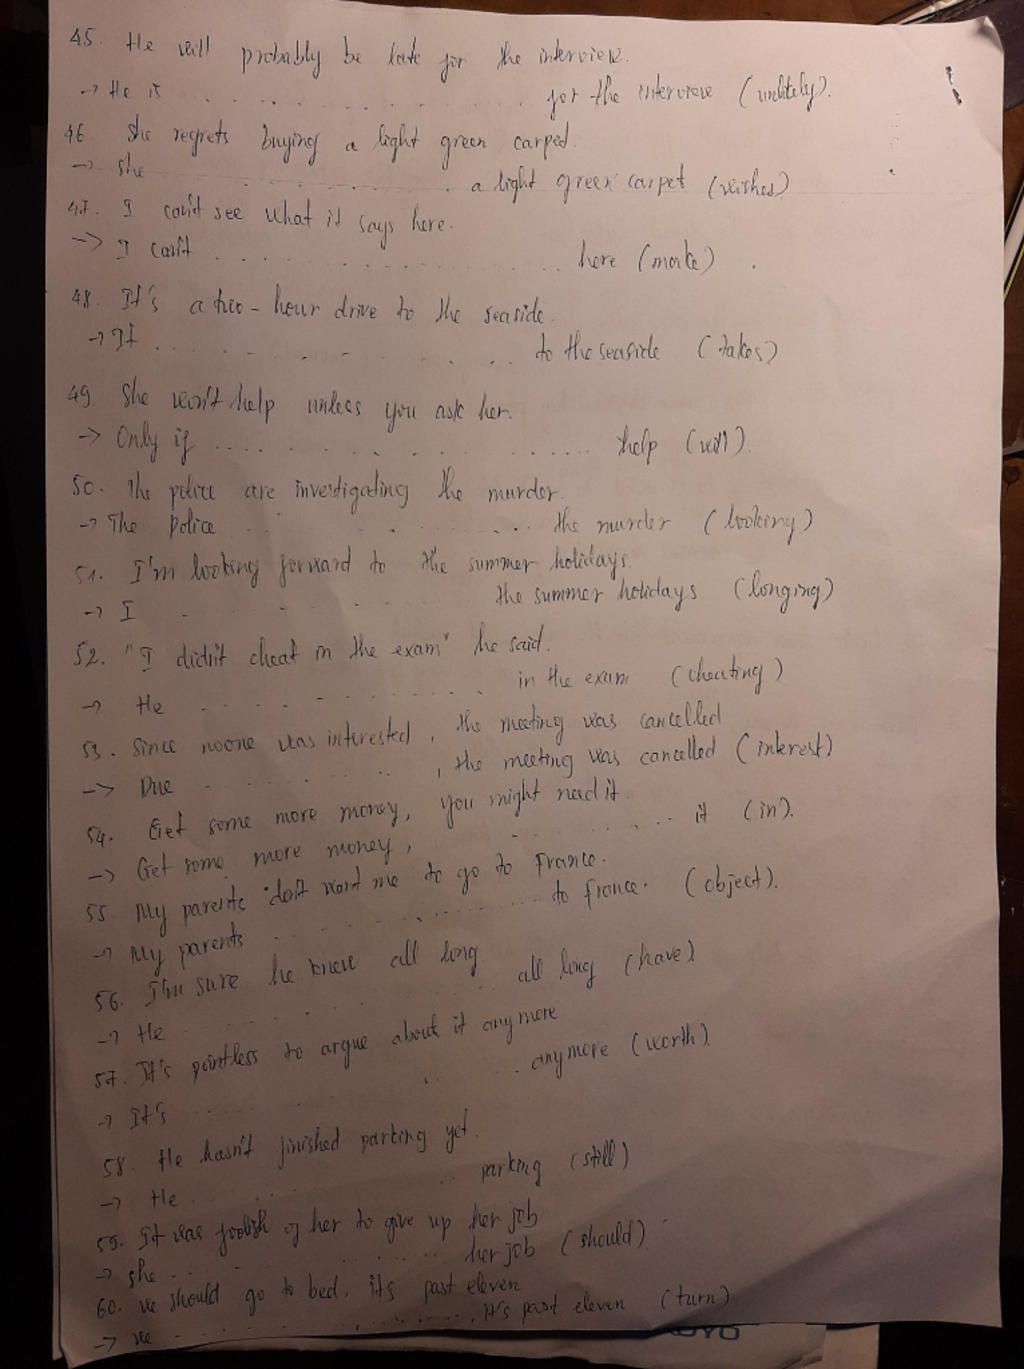 45. He will probably be late for the interview.
-> He is ................ for the interview (unlikely).
46 She regrets buying a light green carped.
-> She ................ a light green carpet (wishes)
47. I can't see what it says here.
-> I can't ................ here (make) .
48. It's a two-hour drive to the seaside.
-> It ................ to the seaside (takes)
49. She won't help unless you ask her.
-> Only if ................ help (will).
50. The police are investigating the murder.
-> The police ................ the murder (looking)
51. I'm looking forward to the summer holidays.
-> I ................ the summer holidays (longing)
52. "I didn't cheat in the exam" he said.
-> He ................ in the exam (cheating)
53. Since noone was interested, the meeting was cancelled
-> Due ................, the meeting was cancelled (interest)
54. Get some more money, you might need it.
-> Get some more money, ................ it (in).
55. My parents don't want me to go to France.
-> My parents ................ to france. (object).
56. I'm sure he knew all long
-> He ................ all long (have)
57. It's pointless to argue about it anymore
-> It's ................ anymore (worth)
58. He hasn't finished parking yet.
-> He ................ parking (still)
59. It was foolish of her to give up her job
-> she ................ her job (should)
60. we should go to bed, it's past eleven
-> we ................, it's past eleven (turn)